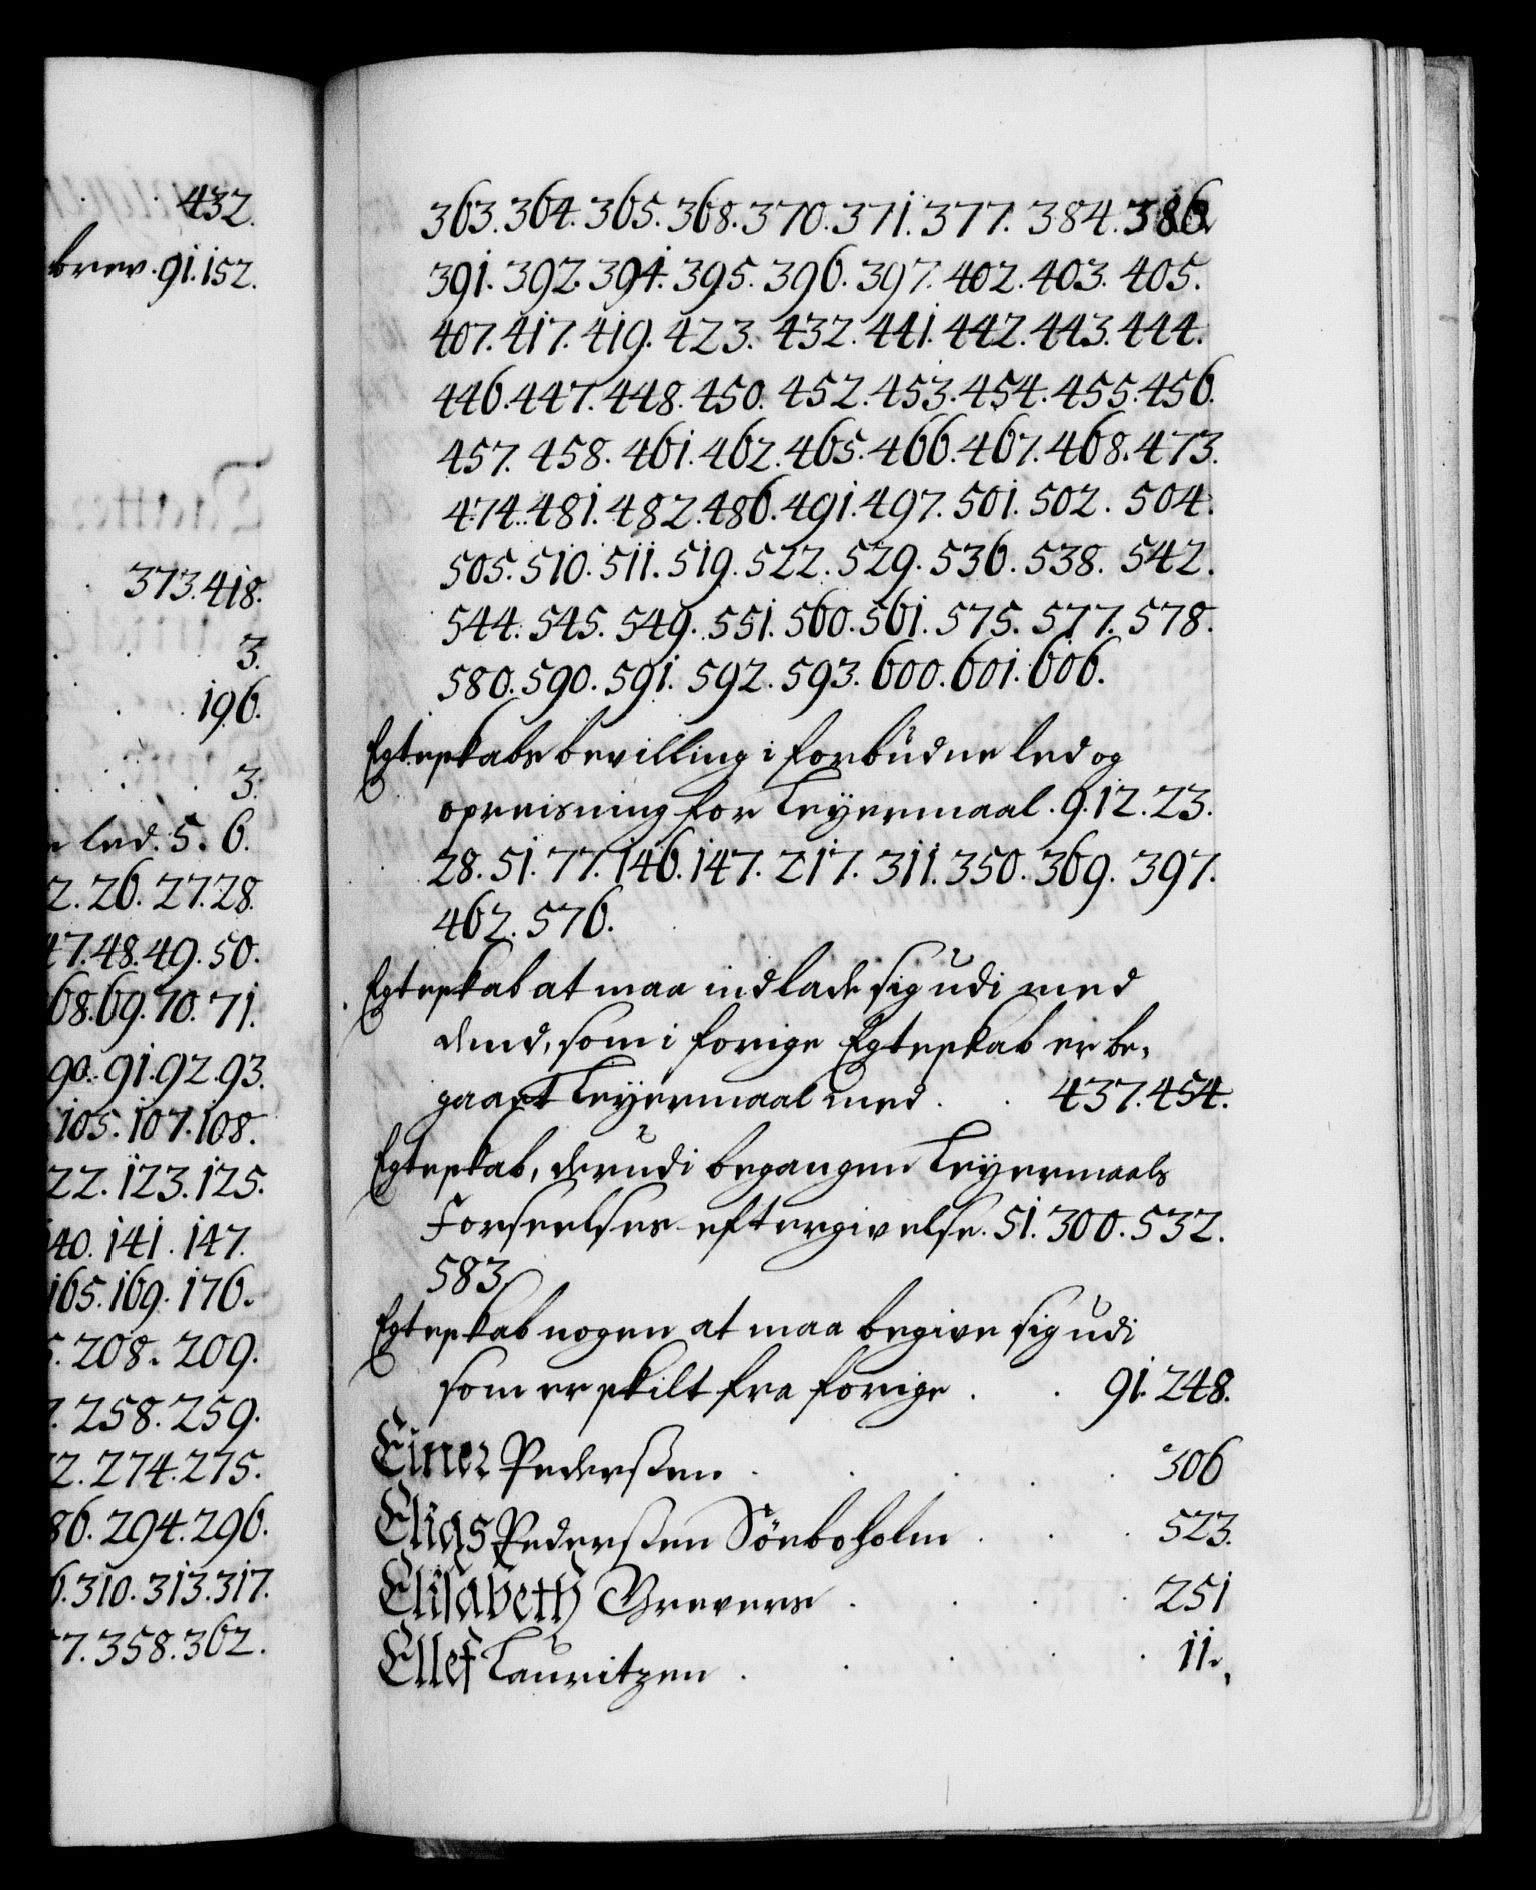 432.
brev. 91. 152.
373. 418.
3.
196.
3.
led. 5. 6.
2. 26. 27. 28.
47. 48. 49. 50.
68. 69. 70. 71.
90. 91. 92. 93.
105. 107. 108.
22. 123. 125.
140. 141. 147.
165. 169. 176.
208. 209.
258. 259.
2. 274. 275.
86. 294. 296.
6. 310. 313. 317.
7. 358. 362.
363. 364. 365. 368. 370. 371. 377. 384. 386
391. 392. 394. 395. 396. 397. 402. 403. 405.
407. 417. 419. 423. 432. 441. 442. 443. 444.
446. 447. 448. 450. 452. 453. 454. 455. 456.
457. 458. 461. 462. 465. 466. 467. 468. 473.
474. 481. 482. 486. 491. 497. 501. 502. 504.
505. 510. 511. 519. 522. 529. 536. 538. 542.
544. 545. 549. 551. 560. 561. 575. 577. 578.
580. 590. 591. 592. 593. 600. 601. 606.
Egteskabs bevilling i forbudne led og
opreisning for Leyermaal. 9. 12. 23.
28. 51. 77. 146. 147. 217. 311. 350. 369. 397.
462. 576.
Egteskab at maa indlade sig udi med
dend, som i forige Egteskab er be,
gaaet Leyermaal med . . 437. 454.
Egteskab, derudi begangen Leyermaals
Forseelses eftergivelse. 51. 300. 532.
583
Egteskab nogen at maa begive sig udi
som er skilt fra forige . . 91. 248.
Einer Pederssen . . . . . 306
Elias Pederssen Sönboholm . . . 523.
Elisabeth Grevers . . . . 251
Ellef Lauritzen . . . . . 11.